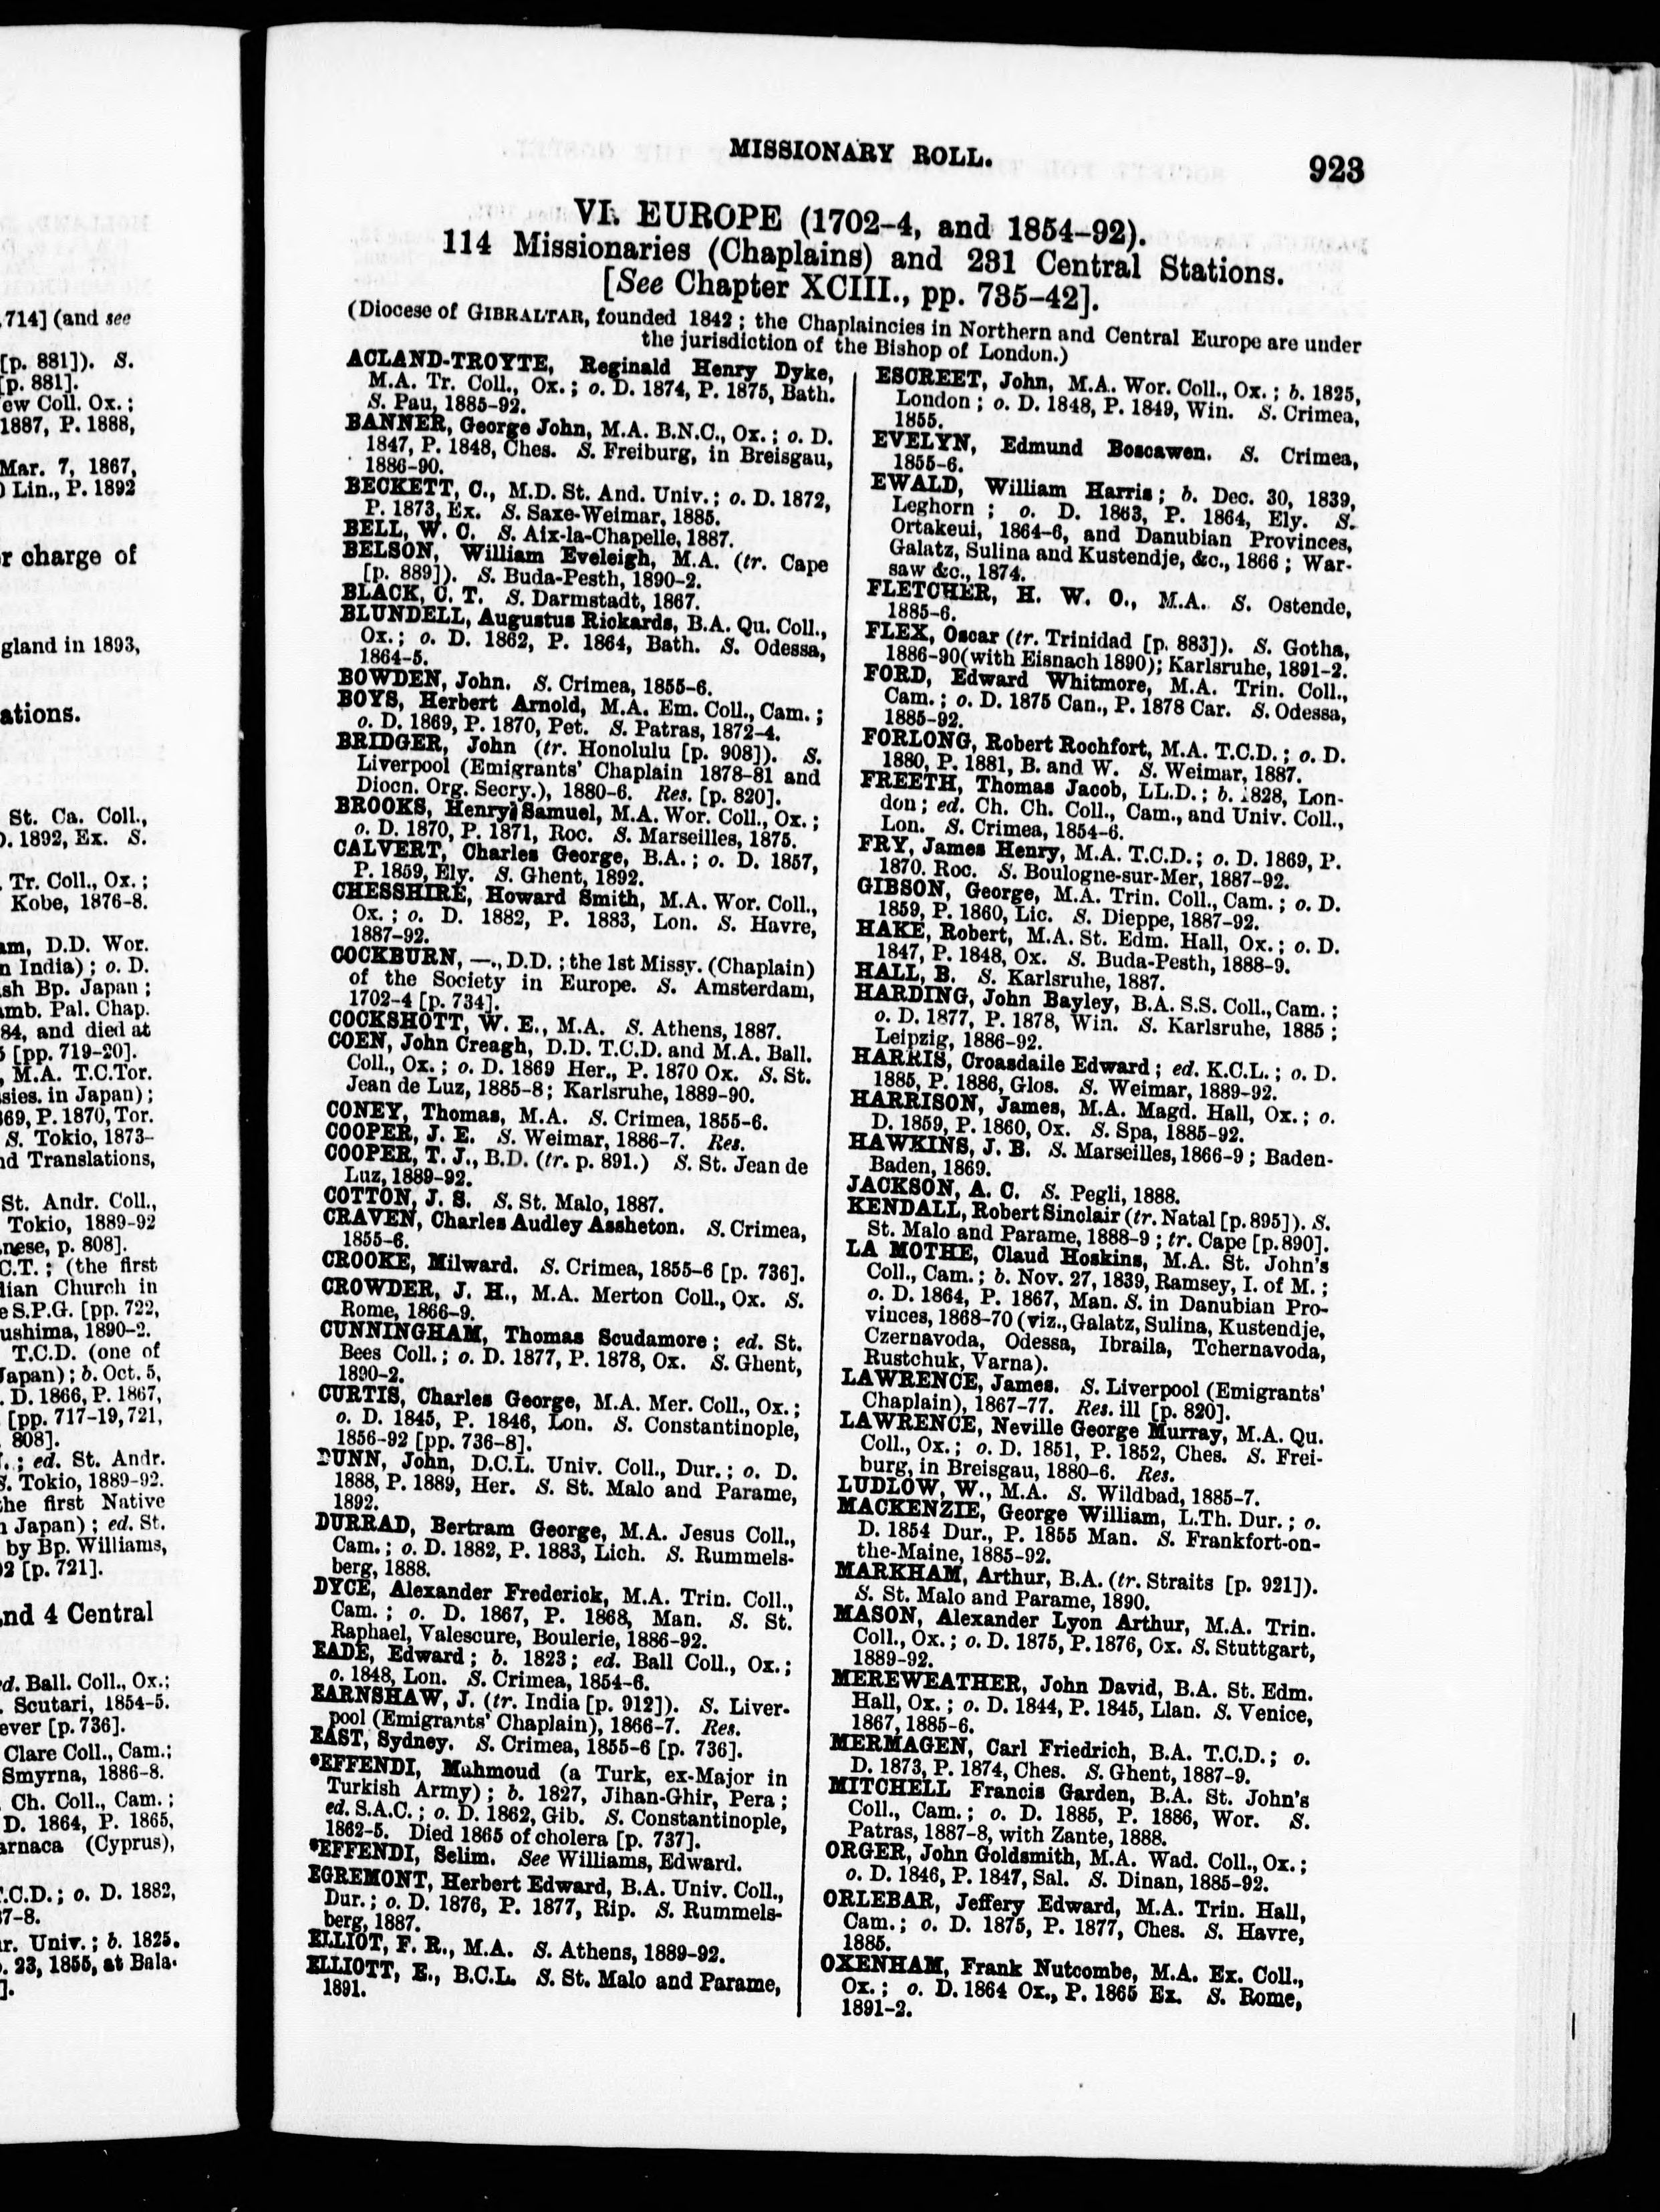 714] (and see
[p. 881]). S.
[p. 881].
ew Coll. Ox.;
1887, P. 1888,
Mar. 7, 1867,
Lin., P. 1892
r charge of
gland in 1893,
ations.
St. Ca. Coll.,
. 1892, Ex. S.
Tr. Coll., Ox.;
Kobe, 1876-8.
am, D.D. Wor.
n India); o. D.
sh Bp. Japan;
amb. Pal. Chap.
84, and died at
[pp. 719-20].
, M.A. T.C.Tor.
sies. in Japan);
869, P. 1870, Tor.
S. Tokio, 1873-
nd Translations,
St. Andr. Coll.,
Tokio, 1889-92
nese, p. 808].
C.T.; (the first
dian Church in
e S.P.G. [pp. 722,
ushima, 1890-2.
T.C.D. (one of
Japan); b. Oct. 5,
. D. 1866, P. 1867,
[pp. 717-19, 721,
808].
.; ed. St. Andr.
S. Tokio, 1889-92.
the first Native
n Japan); ed. St.
by Bp. Williams,
92 [p. 721].
and 4 Central
ed. Ball. Coll., Ox.;
. Scutari, 1854-5.
ever [p. 736].
Clare Coll., Cam.;
Smyrna, 1886-8.
Ch. Coll., Cam.;
D. 1864, P. 1865,
arnaca (Cyprus),
.C.D.; o. D. 1882,
87-8.
r. Univ.; b. 1825.
. 23, 1855, at Bala-
].
MISSIONARY ROLL.
923
VI. EUROPE (1702-4, and 1854-92).
114 Missionaries (Chaplains) and 231 Central Stations.
[See Chapter XCIII., pp. 735-42].
(Diocese of GIBRALTAR, founded 1842; the Chaplaincies in Northern and Central Europe are under
the jurisdiction of the Bishop of London.)
ACLAND-TROYTE, Reginald Henry Dyke,
M.A. Tr. Coll., Ox.; o. D. 1874, P. 1875, Bath.
S. Pau, 1885-92.
BANNER, George John, M.A. B.N.C., Ox.; o. D.
1847, P. 1848, Ches. S. Freiburg, in Breisgau,
1886-90.
BECKETT, C., M.D. St. And. Univ.; o. D. 1872,
P. 1873, Ex. S. Saxe-Weimar, 1885.
BELL, W. C. S. Aix-la-Chapelle, 1887.
BELSON, William Eveleigh, M.A. (tr. Cape
[p. 889]). S. Buda-Pesth, 1890-2.
BLACK, C. T. S. Darmstadt, 1867.
BLUNDELL, Augustus Rickards, B.A. Qu. Coll.,
Ox.; o. D. 1862, P. 1864, Bath. S. Odessa,
1864-5.
BOWDEN, John. S. Crimea, 1855-6.
BOYS, Herbert Arnold, M.A. Em. Coll., Cam.;
o. D. 1869, P. 1870, Pet. S. Patras, 1872-4.
BRIDGER, John (tr. Honolulu [p. 908]). S.
Liverpool (Emigrants' Chaplain 1878-81 and
Diocn. Org. Secry.), 1880-6. Res. [p. 820].
BROOKS, Henry Samuel, M.A. Wor. Coll., Ox.;
o. D. 1870, P. 1871, Roc. S. Marseilles, 1875.
CALVERT, Charles George, B.A.; o. D. 1857,
P. 1859, Ely. S. Ghent, 1892.
CHESSHIRE, Howard Smith, M.A. Wor. Coll.,
Ox.; o. D. 1882, P. 1883, Lon. S. Havre,
1887-92.
COCKBURN, —., D.D.; the 1st Missy. (Chaplain)
of the Society in Europe. S. Amsterdam,
1702-4 [p. 734].
COCKSHOTT, W. E., M.A. S. Athens, 1887.
COEN, John Creagh, D.D. T.C.D. and M.A. Ball.
Coll., Ox.; o. D. 1869 Her., P. 1870 Ox. S. St.
Jean de Luz, 1885-8; Karlsruhe, 1889-90.
CONEY, Thomas, M.A. S. Crimea, 1855-6.
COOPER, J. E. S. Weimar, 1886-7. Res.
COOPER, T. J., B.D. (tr. p. 891.) S. St. Jean de
Luz, 1889-92.
COTTON, J. S. S. St. Malo, 1887.
CRAVEN, Charles Audley Assheton. S. Crimea,
1855-6.
CROOKE, Milward. S. Crimea, 1855-6 [p. 736].
CROWDER, J. H., M.A. Merton Coll., Ox. S.
Rome, 1866-9.
CUNNINGHAM, Thomas Scudamore; ed. St.
Bees Coll.; o. D. 1877, P. 1878, Ox. S. Ghent,
1890-2.
CURTIS, Charles George, M.A. Mer. Coll., Ox.;
o. D. 1845, P. 1846, Lon. S. Constantinople,
1856-92 [pp. 736-8].
DUNN, John, D.C.L. Univ. Coll., Dur.; o. D.
1888, P. 1889, Her. S. St. Malo and Parame,
1892.
DURRAD, Bertram George, M.A. Jesus Coll.,
Cam.; o. D. 1882, P. 1883, Lich. S. Rummels-
berg, 1888.
DYCE, Alexander Frederick, M.A. Trin. Coll.,
Cam.; o. D. 1867, P. 1868, Man. S. St.
Raphael, Valescure, Boulerie, 1886-92.
EADE, Edward; b. 1823; ed. Ball Coll., Ox.;
o. 1848, Lon. S. Crimea, 1854-6.
EARNSHAW, J. (tr. India [p. 912]). S. Liver-
pool (Emigrants' Chaplain), 1866-7. Res.
EAST, Sydney. S. Crimea, 1855-6 [p. 736].
*EFFENDI, Mahmoud (a Turk, ex-Major in
Turkish Army); b. 1827, Jihan-Ghir, Pera;
ed. S.A.C.; o. D. 1862, Gib. S. Constantinople,
1862-5. Died 1865 of cholera [p. 737].
*EFFENDI, Selim. See Williams, Edward.
EGREMONT, Herbert Edward, B.A. Univ. Coll.,
Dur.; o. D. 1876, P. 1877, Rip. S. Rummels-
berg, 1887.
ELLIOT, F. R., M.A. S. Athens, 1889-92.
ELLIOTT, E., B.C.L. S. St. Malo and Parame,
1891.
ESCREET, John, M.A. Wor. Coll., Ox.; b. 1825,
London; o. D. 1848, P. 1849, Win. S. Crimea,
1855.
EVELYN, Edmund Boscawen. S. Crimea,
1855-6.
EWALD, William Harris; b. Dec. 30, 1839,
Leghorn; o. D. 1863, P. 1864, Ely. S.
Ortakeui, 1864-6, and Danubian Provinces,
Galatz, Sulina and Kustendje, &c., 1866; War-
saw &c., 1874.
FLETCHER, H. W. O., M.A. S. Ostende,
1885-6.
FLEX, Oscar (tr. Trinidad [p. 883]). S. Gotha,
1886-90 (with Eisnach 1890); Karlsruhe, 1891-2.
FORD, Edward Whitmore, M.A. Trin. Coll.,
Cam.; o. D. 1875 Can., P. 1878 Car. S. Odessa,
1885-92.
FORLONG, Robert Rochfort, M.A. T.C.D.; o. D.
1880, P. 1881, B. and W. S. Weimar, 1887.
FREETH, Thomas Jacob, LL.D.; b. 1828, Lon-
don; ed. Ch. Ch. Coll., Cam., and Univ. Coll.,
Lon. S. Crimea, 1854-6.
FRY, James Henry, M.A. T.C.D.; o. D. 1869, P.
1870. Roc. S. Boulogne-sur-Mer, 1887-92.
GIBSON, George, M.A. Trin. Coll., Cam.; o. D.
1859, P. 1860, Lic. S. Dieppe, 1887-92.
HAKE, Robert, M.A. St. Edm. Hall, Ox.; o. D.
1847, P. 1848, Ox. S. Buda-Pesth, 1888-9.
HALL, B. S. Karlsruhe, 1887.
HARDING, John Bayley, B.A. S.S. Coll., Cam.;
o. D. 1877, P. 1878, Win. S. Karlsruhe, 1885;
Leipzig, 1886-92.
HARRIS, Croasdaile Edward; ed. K.C.L.; o. D.
1885, P. 1886, Glos. S. Weimar, 1889-92.
HARRISON, James, M.A. Magd. Hall, Ox.; o.
D. 1859, P. 1860, Ox. S. Spa, 1885-92.
HAWKINS, J. B. S. Marseilles, 1866-9; Baden-
Baden, 1869.
JACKSON, A. C. S. Pegli, 1888.
KENDALL, Robert Sinclair (tr. Natal [p. 895]). S.
St. Malo and Parame, 1888-9; tr. Cape [p. 890].
LA MOTHE, Claud Hoskins, M.A. St. John's
Coll., Cam.; b. Nov. 27, 1839, Ramsey, I. of M.;
o. D. 1864, P. 1867, Man. S. in Danubian Pro-
vinces, 1868-70 (viz., Galatz, Sulina, Kustendje,
Czernavoda, Odessa, Ibraila, Tchernavoda,
Rustchuk, Varna).
LAWRENCE, James. S. Liverpool (Emigrants'
Chaplain), 1867-77. Res. ill [p. 820].
LAWRENCE, Neville George Murray, M.A. Qu.
Coll., Ox.; o. D. 1851, P. 1852, Ches. S. Frei-
burg, in Breisgau, 1880-6. Res.
LUDLOW, W., M.A. S. Wildbad, 1885-7.
MACKENZIE, George William, L.Th. Dur.; o.
D. 1854 Dur., P. 1855 Man. S. Frankfort-on-
the-Maine, 1885-92.
MARKHAM, Arthur, B.A. (tr. Straits [p. 921]).
S. St. Malo and Parame, 1890.
MASON, Alexander Lyon Arthur, M.A. Trin.
Coll., Ox.; o. D. 1875, P. 1876, Ox. S. Stuttgart,
1889-92.
MEREWEATHER, John David, B.A. St. Edm.
Hall, Ox.; o. D. 1844, P. 1845, Llan. S. Venice,
1867, 1885-6.
MERMAGEN, Carl Friedrich, B.A. T.C.D.; o.
D. 1873, P. 1874, Ches. S. Ghent, 1887-9.
MITCHELL Francis Garden, B.A. St. John's
Coll., Cam.; o. D. 1885, P. 1886, Wor. S.
Patras, 1887-8, with Zante, 1888.
ORGER, John Goldsmith, M.A. Wad. Coll., Ox.;
o. D. 1846, P. 1847, Sal. S. Dinan, 1885-92.
ORLEBAR, Jeffery Edward, M.A. Trin. Hall,
Cam.; o. D. 1875, P. 1877, Ches. S. Havre,
1885.
OXENHAM, Frank Nutcombe, M.A. Ex. Coll.,
Ox.; o. D. 1864 Ox., P. 1865 Ex. S. Rome,
1891-2.